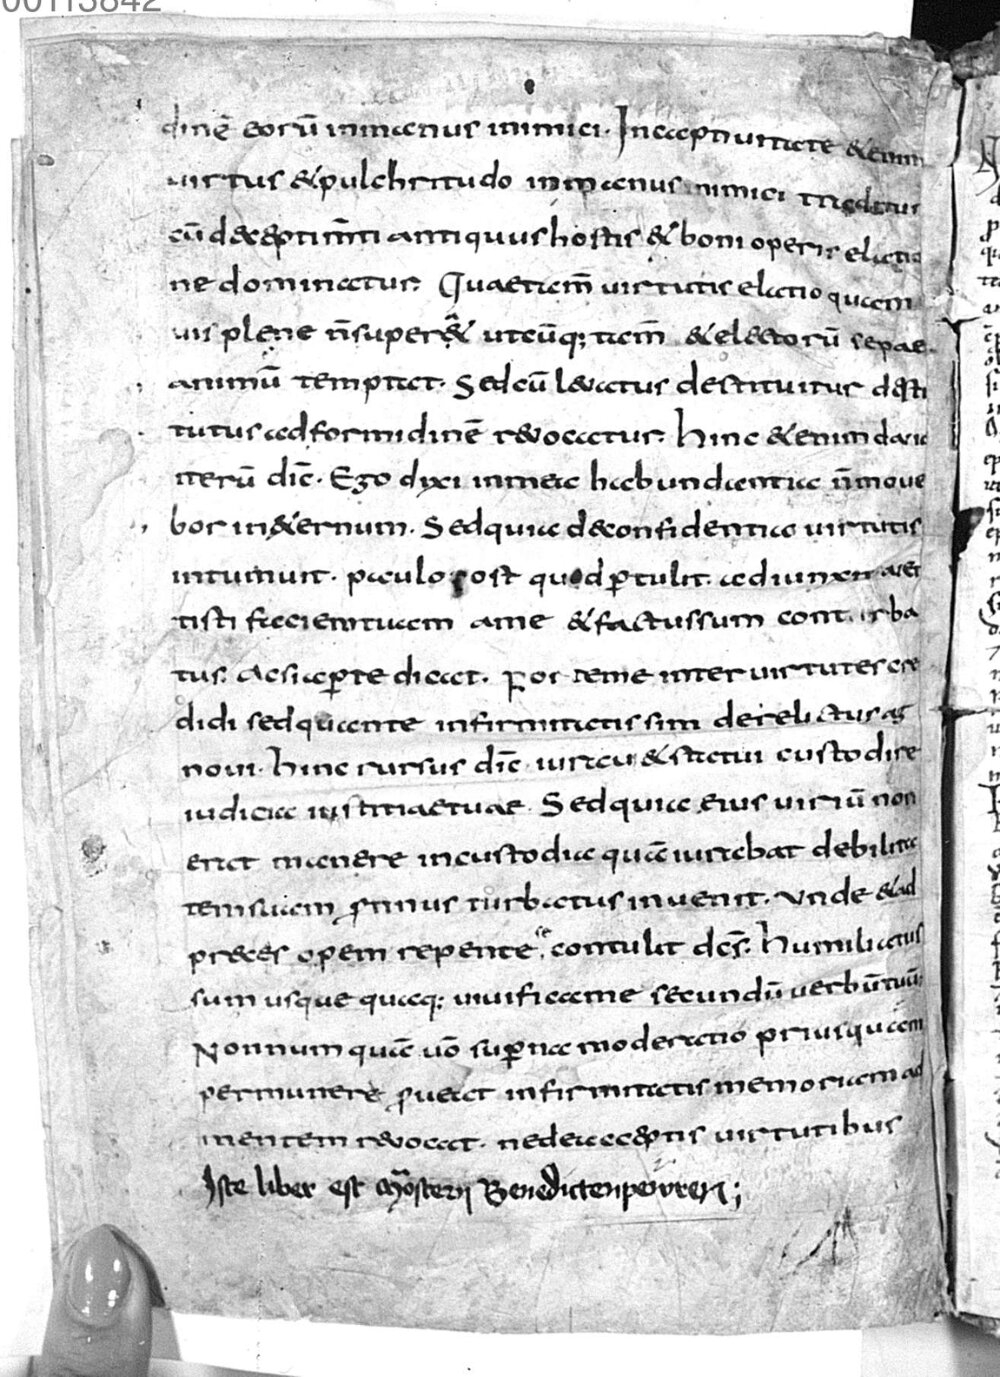 00113842
dinē eorū inmanus inimici. Incaptiuitate &enim
uirtus &pulchritudo inmanus inimici traditur
cū dęceptimti antiquus hostis &boni operis elatio
ne dominatur. Quaetam̄ uirtutis elatio quam
uis plene n̄super& utcūq; tam̄ &electorū sepae
animū temptat. Sed cū leuatus destituitur desti
tutus adformidinē reuocatur. Hinc &enim dauid
iterū dic̄. Ego dixi inmea habundantia n̄moue
bor in&ernum. Sedquia deconfidentia uirtutis
intumuit. paulo post quod ꝑtulit. adiunxit auer
tisti faciemtuam ame &factussum conturba
tus. Acsiaꝑte dicat. Forteme inter uirtutes cre
didi sedquante infirmitatis sim derelictus ag
noui. Hinc rursus dic̄ iuraui &statui custodire
iudicia iustitiaetuae. Sedquia eius uiriū non
erat manere incustodia quā iurabat debilita
temsuam ꝓtinus turbatus inuenit. Unde &ad
preces opem repente se contulit dc̄s. Humiliatus
sum usque quaq; uiuificame secundū uerbūtuū
Nonnum quā uō suꝑna moderatio priusquam
permunere ꝓueat infirmitatis memoriam ad
mentem reuocat. nedeacceptis uirtutibus
Iste liber est Mōsterij Benedictenpewren;